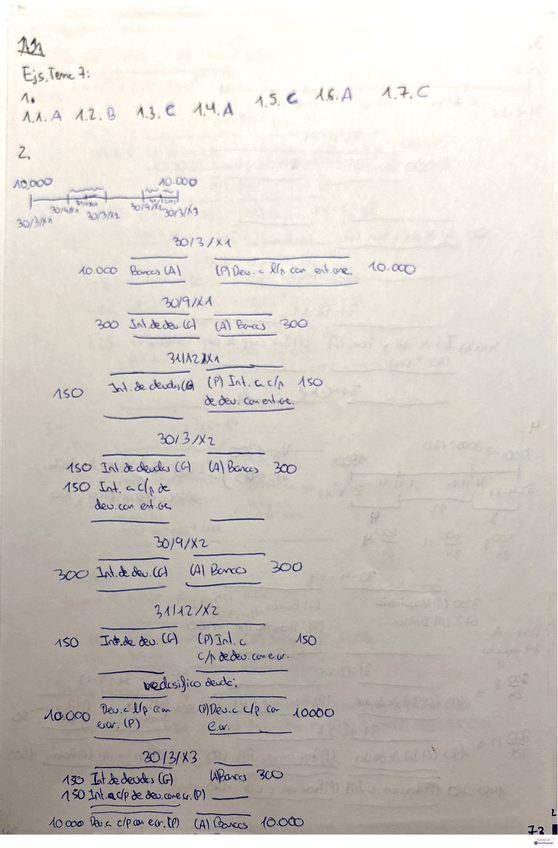 Ejs. Tema 7:
1.
1.1. A 1.2. B 1.3. C 1.4. A 1.5. C 1.6. A 1.7. C
2.
10.000 10.000
30/3/X1 30/3/X2 30/9/X2 30/3/X3
30/3/X1
10.000 Bancos (A) (P) Deu. a l/p con ent. cre 10.000
30/9/X1
300 Int. de deu. (G) (A) Bancos 300
31/12/X1
150 Int. de deudas (G) (P) Int. a c/p 150
de deu. con ent. cre
30/3/X2
150 Int. de deudas (G) (A) Bancos 300
150 Int. a c/p de
deu. con ent. cre
30/9/X2
300 Int. de deu. (G) (A) Bancos 300
31/12/X2
150 Int. de deu. (G) (P) Int. a 150
c/p de deu. con e. cr.
reclasifico deuda:
10.000 Deu. a l/p con (P) Deu. a c/p con 10000
e.cr. (P) e.cr.
30/3/X3
150 Int. de deudas (G) (A) Bancos 300
150 Int. a c/p de deu. con e. cr. (P)
10.000 Deu. a c/p con e. cr. (P) (A) Bancos 10.000